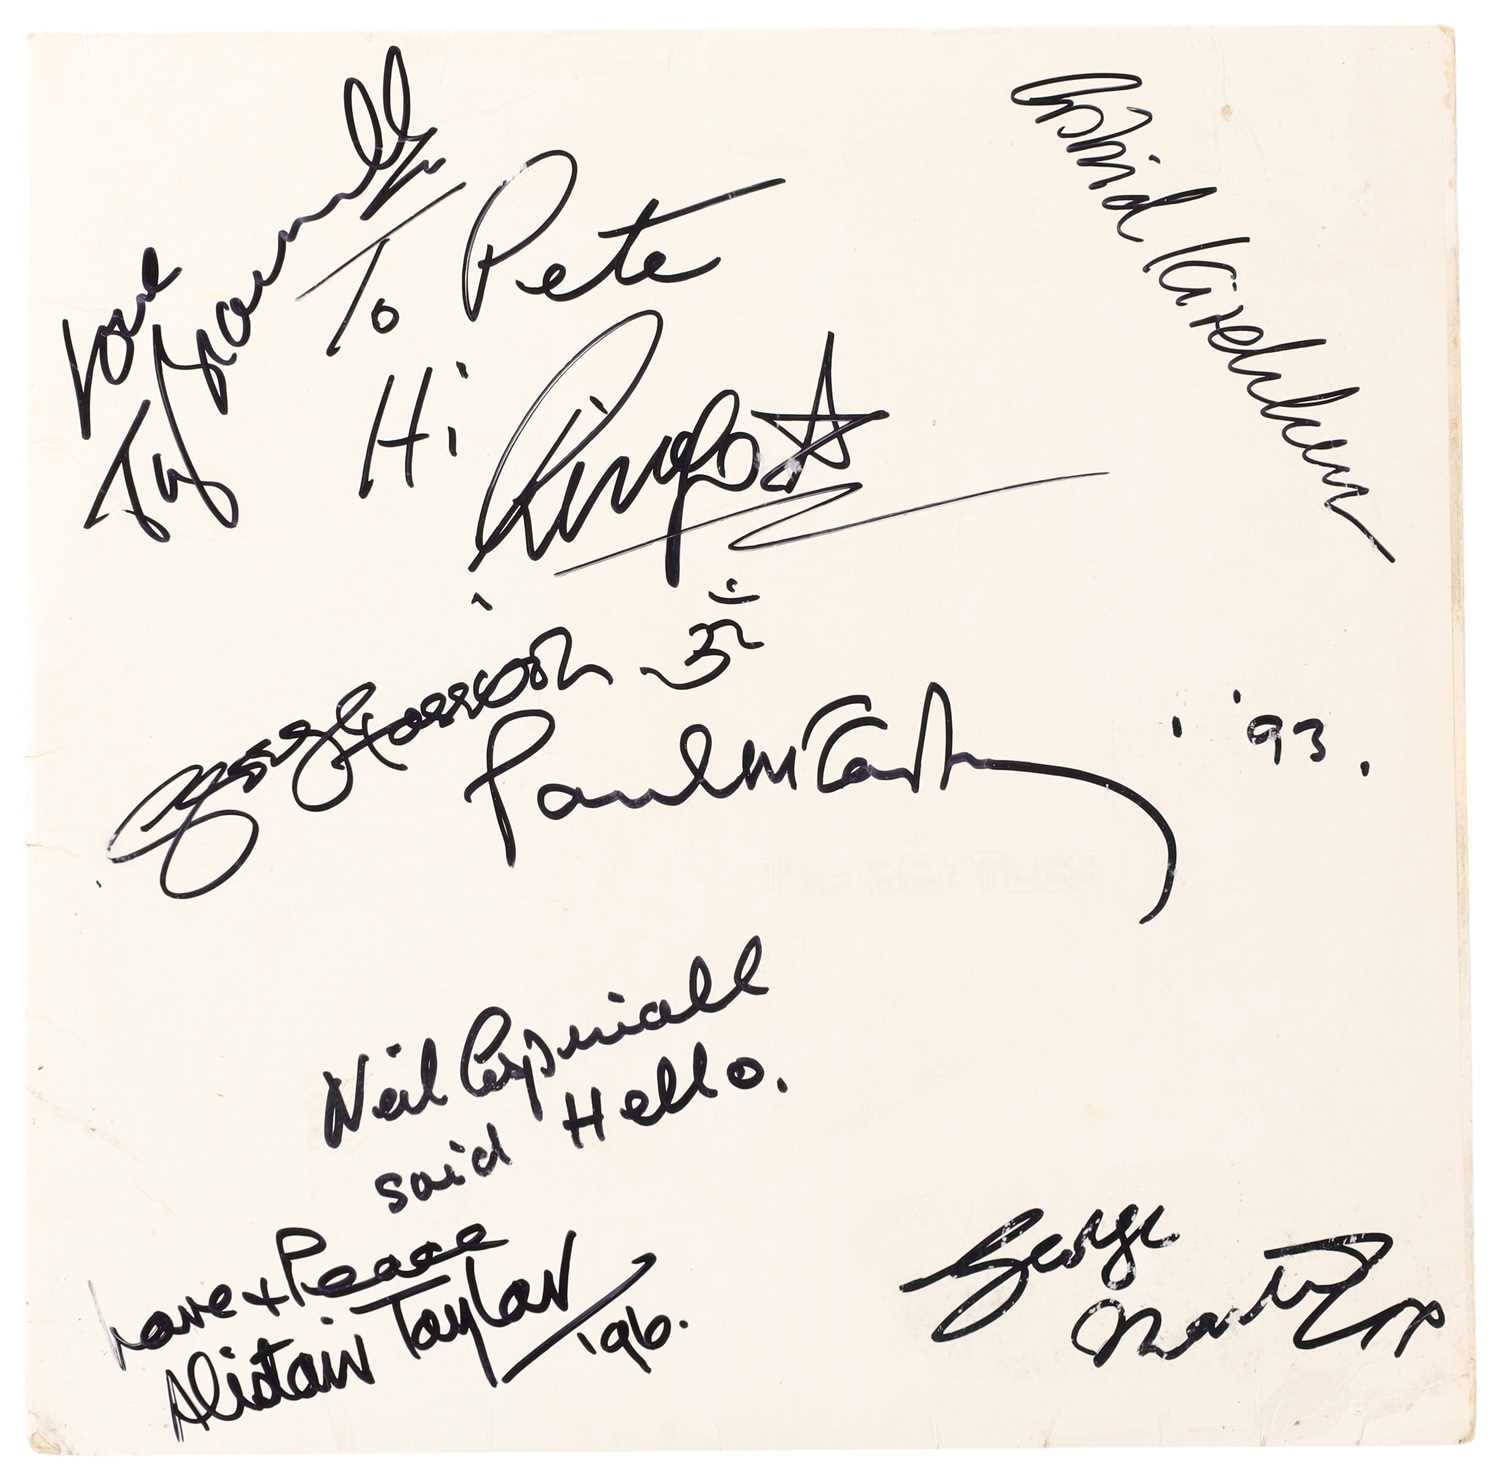 love
Tony Bramwell
Astrid Kirchherr
To Pete
Hi
Ringo
George Harrison ॐ
Paul McCartney '93.
Neil Aspinall
said Hello.
Love + Peace
Alistair Taylor
'96.
George
Martin